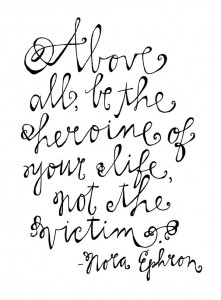 Above
all, be the
heroine of
your life,
not the
victim.
-Nora Ephron